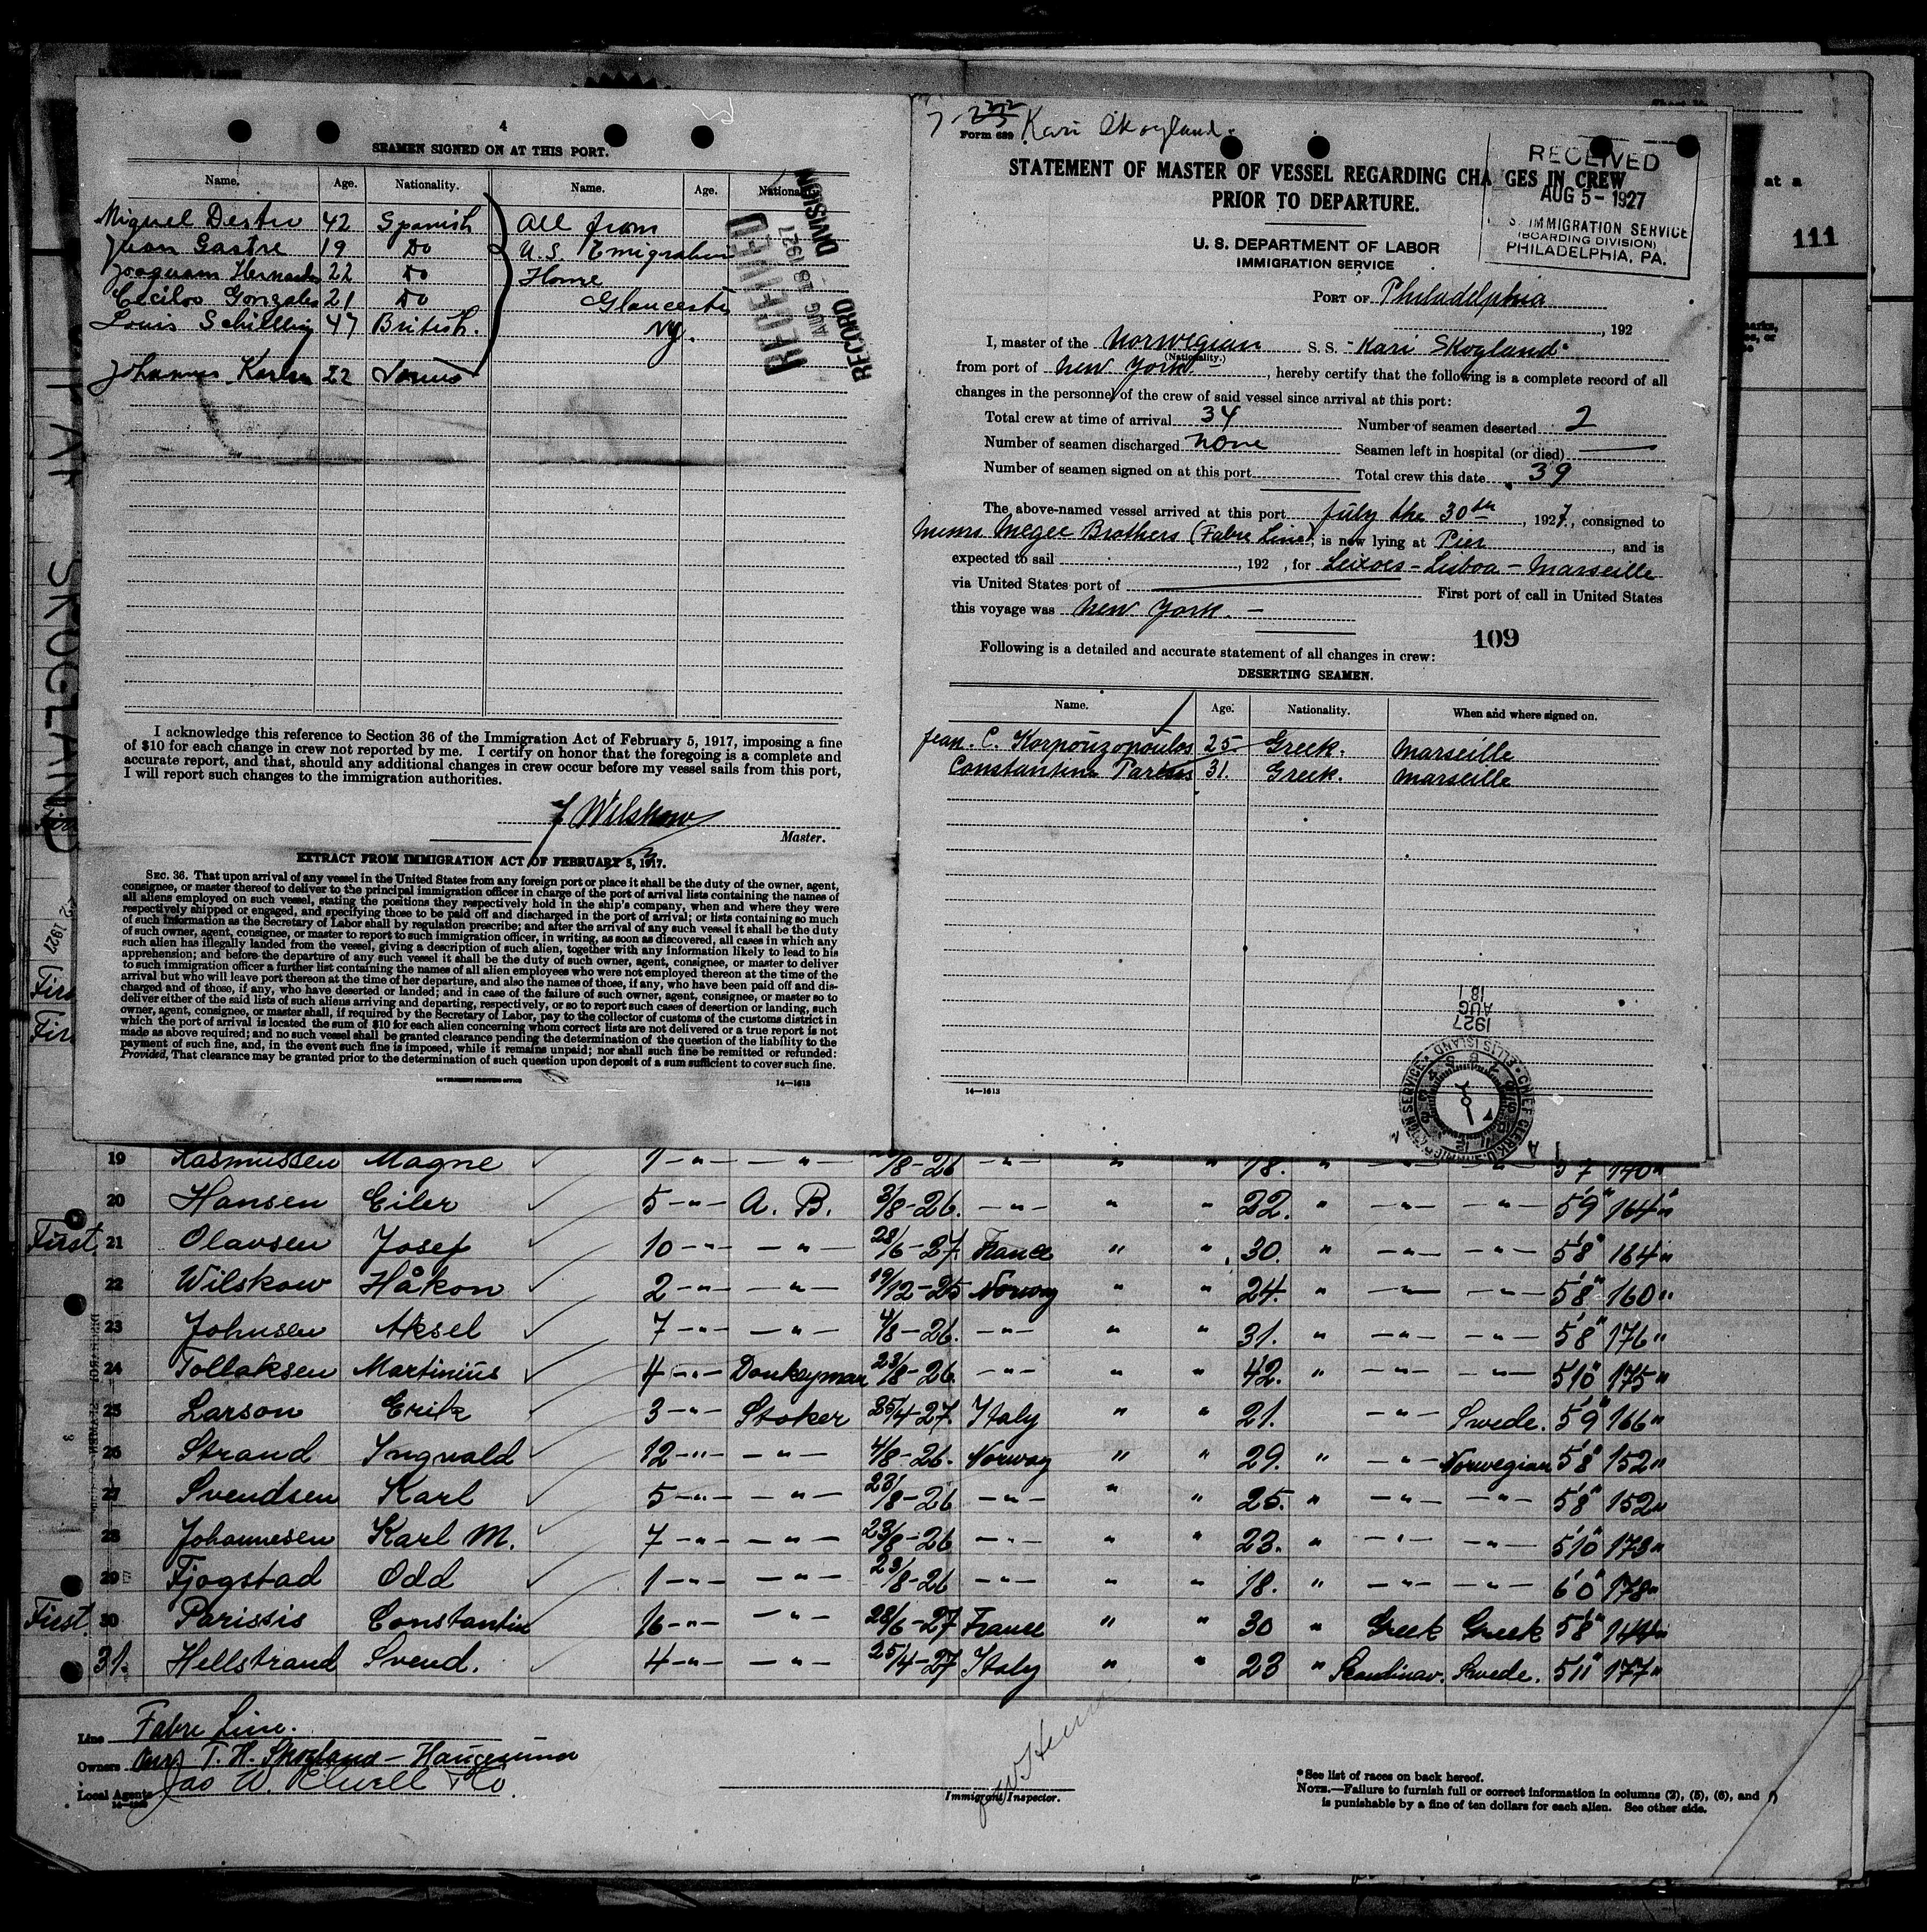 4
SEAMEN SIGNED ON AT THIS PORT.
Name. Age. Nationality. Name. Age. Nationality.
Miguel Desteu 42 Spanish All from
Juan Gastre 19 Do U.S. Emigration
Joaquam Hernandes 22 Do Home
Cecilio Gonzales 21 Do Gloucester
Louis Schilling 47 British. NJ.
Johannes 22
RECEIVED
AUG 18 1927
RECORD DIVISION
I acknowledge this reference to Section 36 of the Immigration Act of February 5, 1917, imposing a fine
of $10 for each change in crew not reported by me. I certify on honor that the foregoing is a complete and
accurate report, and that, should any additional changes in crew occur before my vessel sails from this port,
I will report such changes to the immigration authorities.
J Wilskow
Master.
EXTRACT FROM IMMIGRATION ACT OF FEBRUARY 5, 1917.
SEC. 36. That upon arrival of any vessel in the United States from any foreign port or place it shall be the duty of the owner, agent,
consignee, or master thereof to deliver to the principal immigration officer in charge of the port of arrival lists containing the names of
all aliens employed on such vessel, stating the positions they respectively hold in the ship's company, when and where they were
respectively shipped or engaged, and specifying those to be paid off and discharged in the port of arrival; or lists containing so much
of such information as the Secretary of Labor shall by regulation prescribe; and after the arrival of any such vessel it shall be the duty
of such owner, agent, consignee, or master to report to such immigration officer, in writing, as soon as discovered, all cases in which any
such alien has illegally landed from the vessel, giving a description of such alien, together with any information likely to lead to his
apprehension; and before the departure of any such vessel it shall be the duty of such owner, agent, consignee, or master to deliver
to such immigration officer a further list containing the names of all alien employees who were not employed thereon at the time of the
arrival but who will leave port thereon at the time of her departure, and also the names of those, if any, who have been paid off and dis-
charged and of those, if any, who have deserted or landed; and in case of the failure of such owner, agent, consignee, or master so to
deliver either of the said lists of such aliens arriving and departing, respectively, or so to report such cases of desertion or landing, such
owner, agent, consignee, or master shall, if required by the Secretary of Labor, pay to the collector of customs of the customs district in
which the port of arrival is located the sum of $10 for each alien concerning whom correct lists are not delivered or a true report is not
made as above required; and no such vessel shall be granted clearance pending the determination of the question of the liability to the
payment of such fine, and, in the event such fine is imposed, while it remains unpaid; nor shall such fine be remitted or refunded:
Provided, That clearance may be granted prior to the determination of such question upon deposit of a sum sufficient to cover such fine.
GOVERNMENT PRINTING OFFICE 14—1613
Form 689 Kari Skogland.
STATEMENT OF MASTER OF VESSEL REGARDING CHANGES IN CREW
PRIOR TO DEPARTURE.
RECEIVED
AUG 5 - 1927
U.S. IMMIGRATION SERVICE
(BOARDING DIVISION)
PHILADELPHIA, PA.
U. S. DEPARTMENT OF LABOR
IMMIGRATION SERVICE
PORT OF Philadelphia
, 192
I, master of the Norwegian S. S. "Kari Skogland"
(Nationality.)
from port of New York, hereby certify that the following is a complete record of all
changes in the personnel of the crew of said vessel since arrival at this port:
Total crew at time of arrival 34 Number of seamen deserted 2
Number of seamen discharged none Seamen left in hospital (or died) —
Number of seamen signed on at this port Total crew this date 39
The above-named vessel arrived at this port July the 30th, 1927, consigned to
Messrs. McGee Brothers (Fabre Line), is now lying at Pier, and is
expected to sail , 192 , for Leixoes - Lisboa - Marseille
via United States port of — First port of call in United States
this voyage was New York. —
109
Following is a detailed and accurate statement of all changes in crew:
DESERTING SEAMEN.
Name. Age. Nationality. When and where signed on.
Jean. C. Korpouzopoulos 25 Greek. Marseille
Constantine Parisis 31. Greek. Marseille
14—1613
1927
AUG
18
CHIEF CLERK U.S. IMMIGRATION SERVICE · ELLIS ISLAND
at a
111
KARI SKOGLAND
19 Rasmussen Magne 1 -"- -"- /8-26 -"- " " 18. " -"- -"- 5'7 140"
20 Hansen Eiler 5 -"- A. B. 3/8-26. -"- " " 22. " -"- -"- 5'9" 164"
First. 21 Olavsen Josef 10 -"- -"- 28/6-27. France " " 30. " -"- -"- 5'8" 164"
22 Wilskow Håkon 2 -"- -"- 19/12-25 Norway " " 24. " -"- -"- 5'8" 160"
23 Johnsen Aksel 7 -"- -"- 4/8-26. -"- " " 31. " -"- -"- 5'8" 176"
24 Tollaksen Martinius 4 -"- Donkeyman 23/8-26. -"- " " 42. " -"- -"- 5'10" 175"
25 Larson Erik 3 -"- Stoker 25/4-27. Italy " " 21. -"- Swede. 5'9" 166"
26 Strand Ingvald 12 -"- -"- 4/8-26. Norway " " 29. " -"- Norwegian 5'8" 152"
27 Svendsen Karl 5 -"- -"- 23/8-26 -"- " " 25. " -"- -"- 5'8" 152"
28 Johannesen Karl M. 7 -"- -"- 23/8-26 -"- " " 23. " -"- -"- 5'10" 173"
29 Fjogstad Odd 1 -"- -"- 23/8-26 -"- " " 18. " -"- -"- 6'0" 178"
First. 30 Parissis Constantin 16 -"- -"- 28/6-27 France " " 30 " Greek Greek 5'8" 144"
31. Hellstrand Svend. 4 -"- -"- 25/4-27 Italy " " 23 " Scandinav. Swede. 5'11" 177"
Line Fabre Line.
Owners T. H. Skogland - Haugesund
Local Agents Jas W. Elwell & Co
Immigrant Inspector.
*See list of races on back hereof.
NOTE.—Failure to furnish full or correct information in columns (2), (5), (6), and
is punishable by a fine of ten dollars for each alien. See other side.